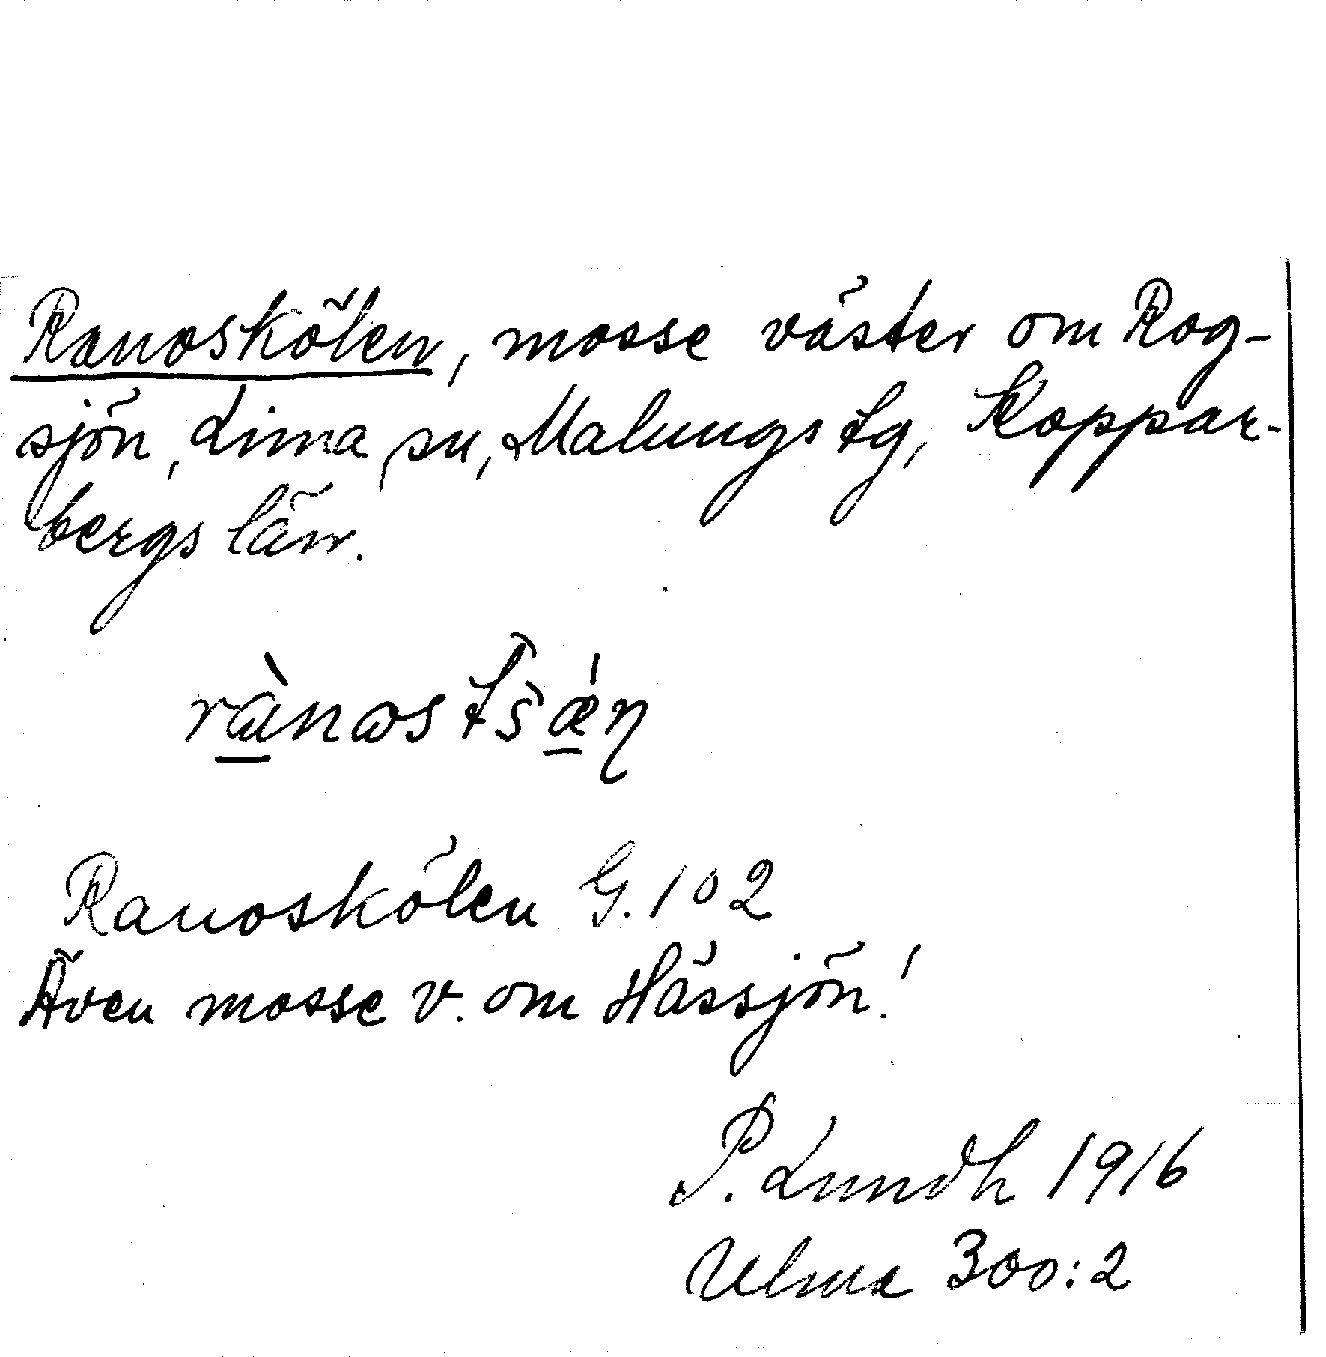 Ranoskölen, mosse väster om Rog-
sjön, Lima sn, Malungs tg, Koppar-
bergs län.
Ranoskölen G. 102
Även mosse v. om Hässjön!
P. Lundh 1916
Ulma 300:2